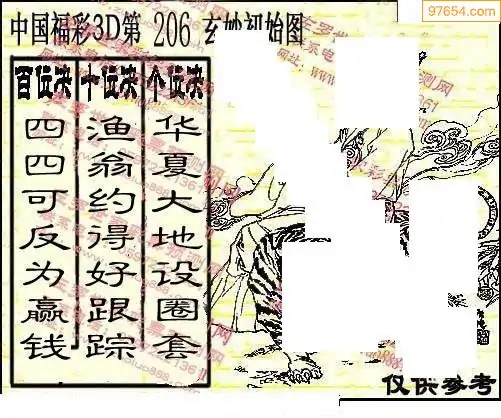 97654.com
中国福彩3D第 206 玄妙初始图
百位决 十位决 个位决
四四可反为赢钱
渔翁约得好跟踪
华夏大地设圈套
仅供参考